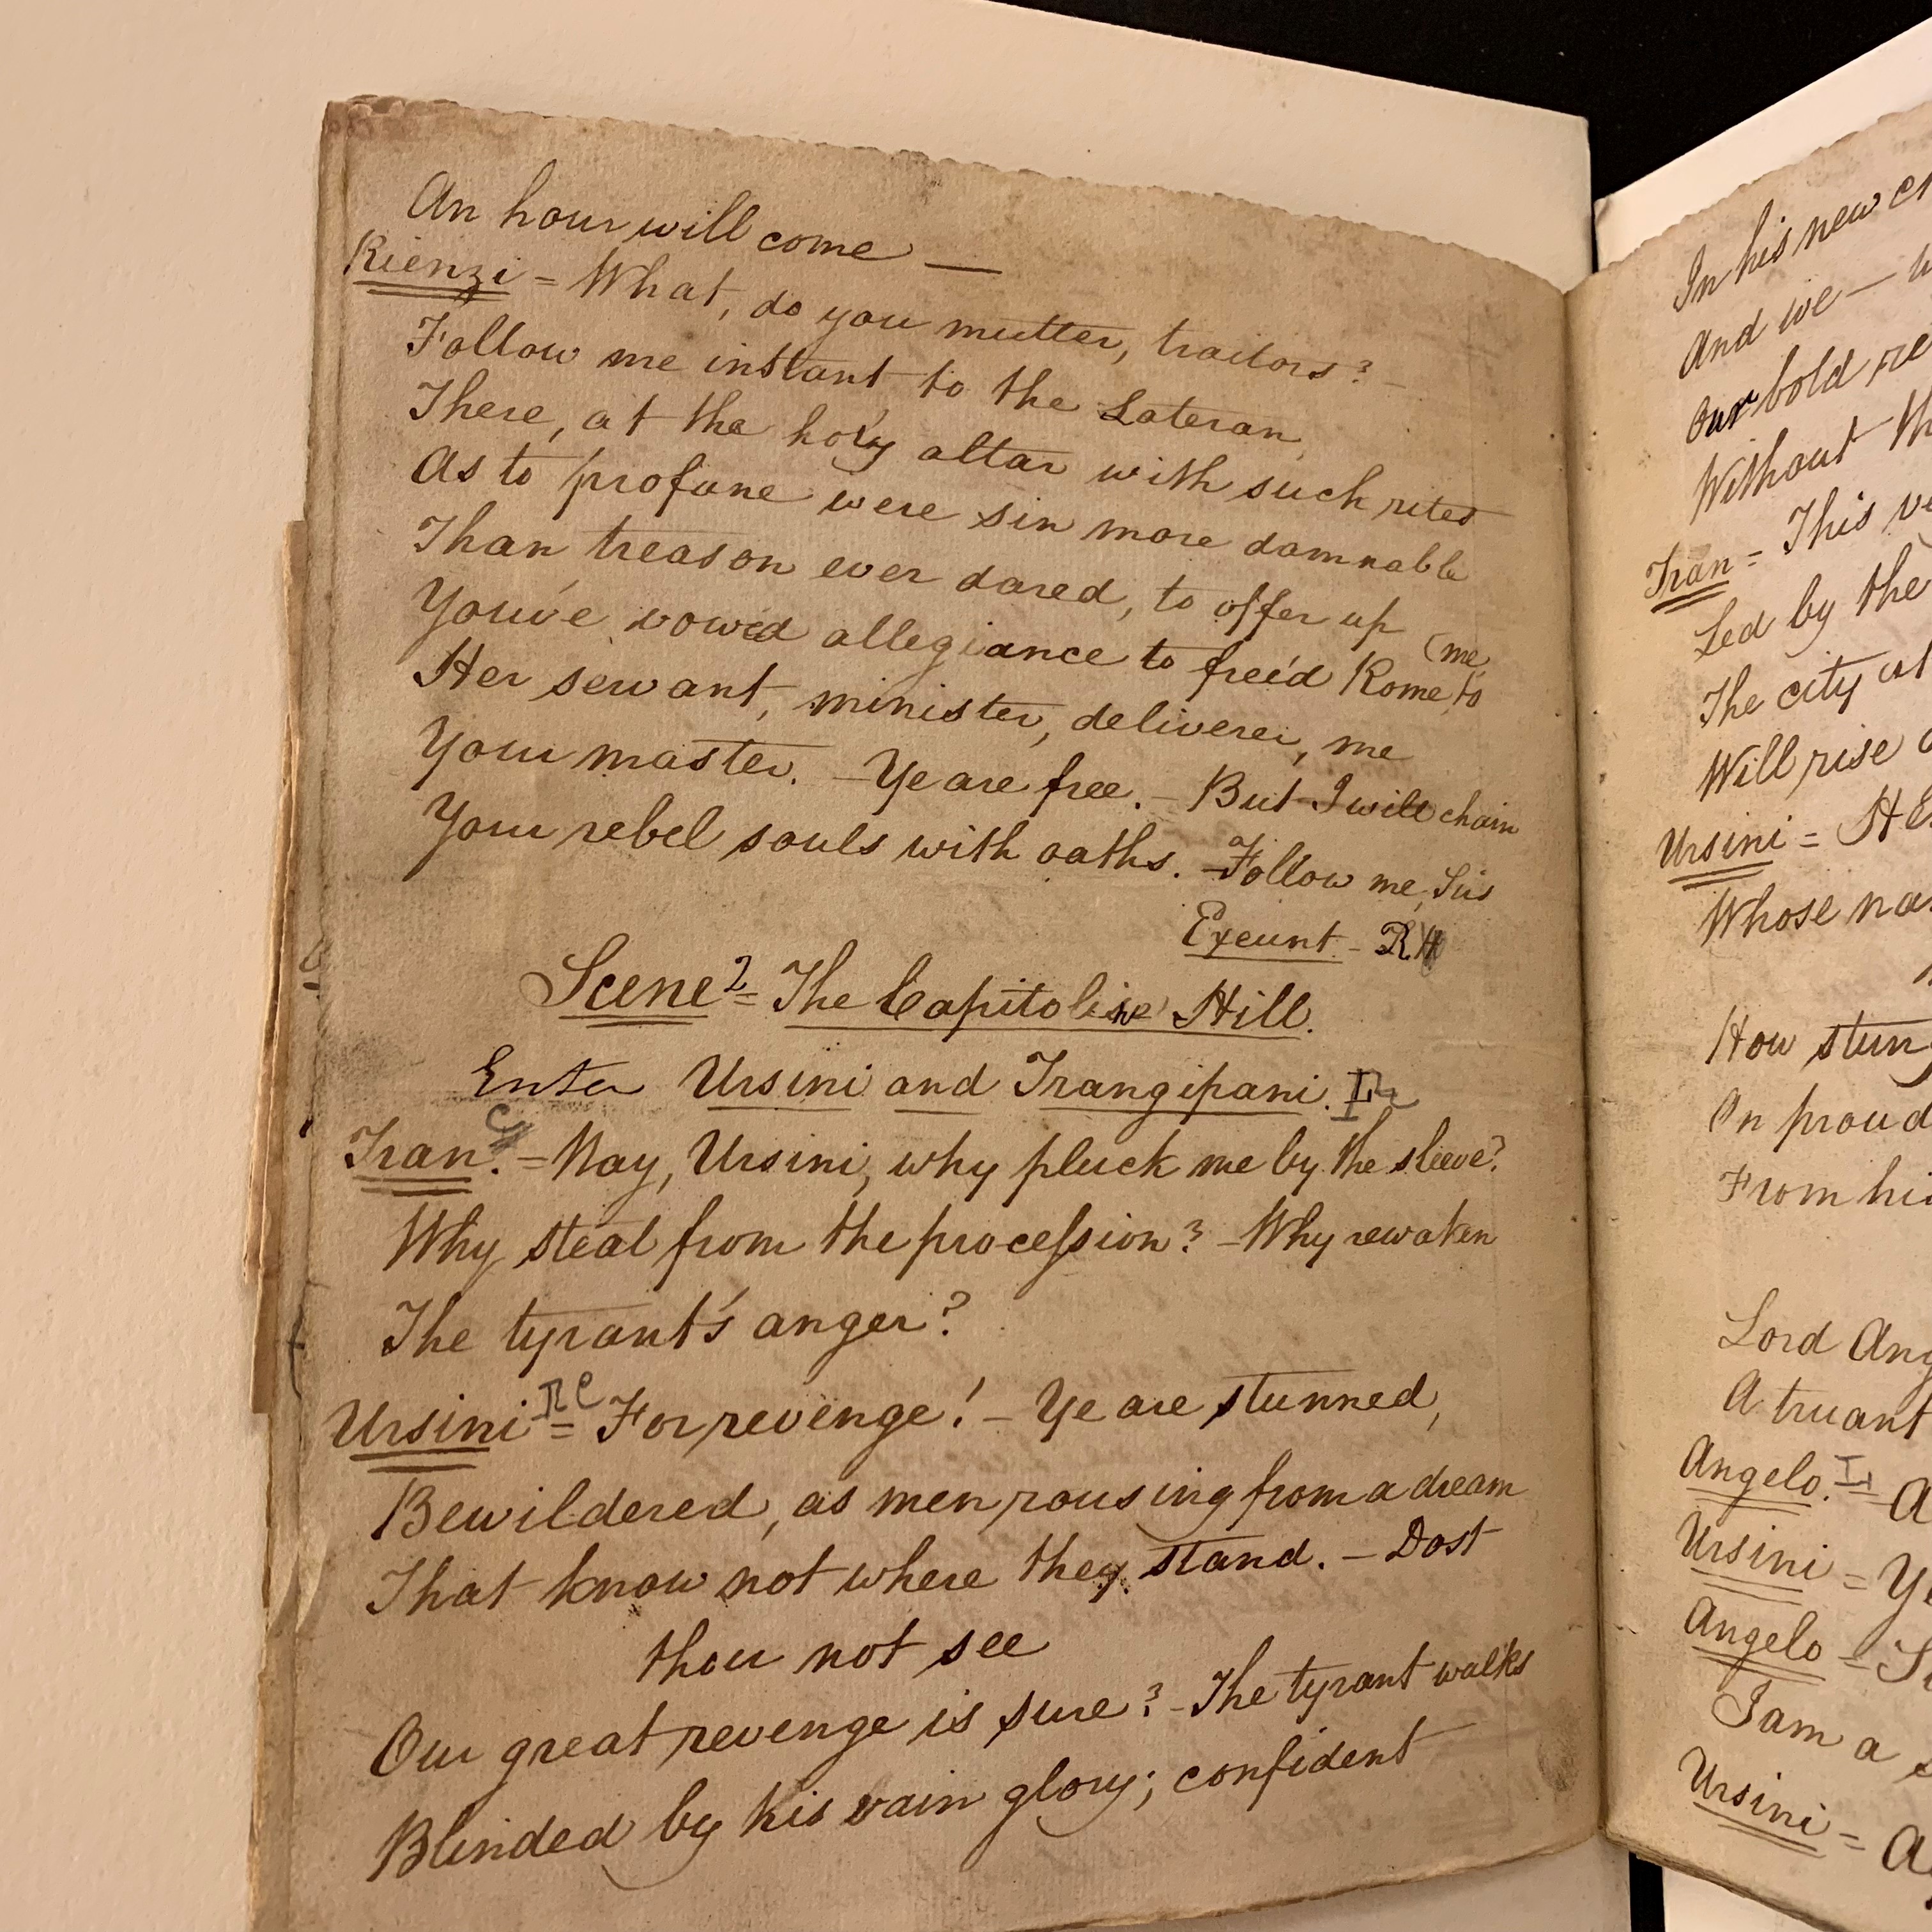 An hour will come —
Rienzi = What, do you mutter, traitors? –
Follow me instant to the Lateran,
There, at the holy altar with such rites
As to profane were sin more damnable
Than treason ever dared, to offer up
(me,
You've vow'd allegiance to free'd Rome, to
Her servant, minister, deliverer, me
Your master. – Ye are free. – But I will chain
Your rebel souls with oaths. – Follow me, Sirs
Exeunt – R H
Scene 2 = The Capitoline Hill.
Enter Ursini and Frangipani. L
C
Fran. = Nay, Ursini, why pluck me by the sleeve?
Why steal from the procession? – Why rewaken
The tyrant's anger?
Ursini = For revenge! – Ye are stunned,
Bewildered, as men rousing from a dream
That know not where they stand. – Dost
thou not see
Our great revenge is sure? – The tyrant walks
Blinded by his vain glory; confident
In his new
And we —
Our bold
Without
Fran = This
Led by the
The city
Will rise
Ursini =
Whose
How
In proud
From
Lord
A truant
Angelo. L =
Ursini =
Angelo =
I am a
Ursini =